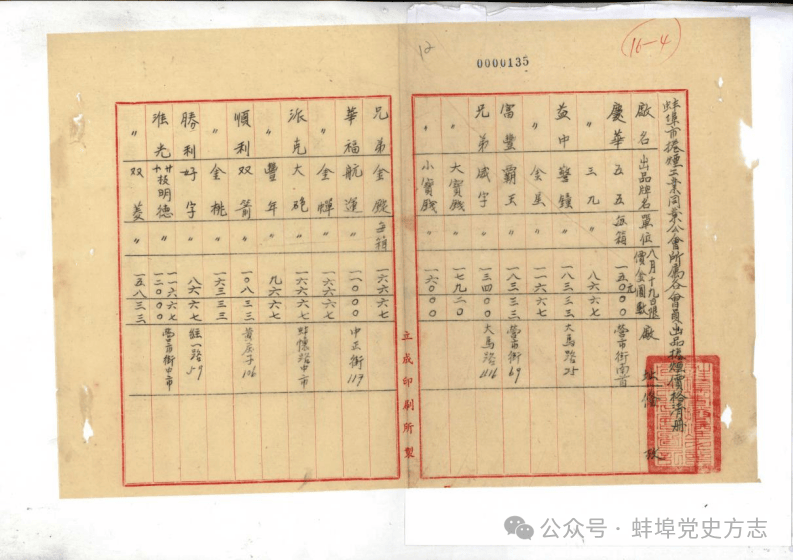 16-4
12
0000135
蚌埠市捲煙工業同業公會所屬各會員出品捲煙價格清册
廠名 出品牌名 單位 八月十九日限價金圓數 廠址 備攷
慶華 五五 每箱 一五〇〇〇 營市街南首
〃 三九 〃 八六六七
益中 警鐘 〃 一八三三三 大馬路25
〃 金魚 〃 一一六六七
富豐 霸王 〃 一八三三三 營市街69
兄弟 咸字 〃 一三四〇〇 大馬路1116
〃 大寶錢 〃 一七九二〇
〃 小寶錢 〃 一六〇〇〇
立成印刷所製
兄弟 金錠 每箱 一六六六七
華福 航運 〃 一一〇〇〇 中正街117
〃 金蟬 〃 一六六六七
派克 大砲 〃 一八六六七 蚌懷路中市
〃 豐年 〃 九六六七
順利 双箭 〃 一〇八三三 黃庄子106
〃 金桃 〃 一六三三三
勝利 好字 〃 八六六七 經一路59
淮光 廿枝十枝明德 〃 一一六六七 一二〇〇〇 營市街中市
〃 双菱 〃 一五八三三
公众号·蚌埠党史方志